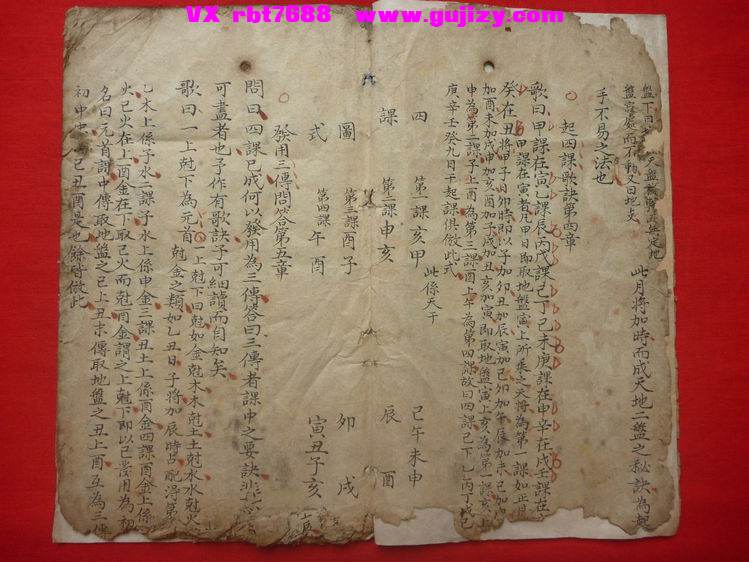 VX rbt7688 www.gujizy.com
此月将加時而成天地二盤之秘訣為
手不易之法也
起四課歌訣第四章
歌曰甲課在寅乙課辰丙戊課巳丁己未庚課在申辛在戌壬課在
癸在丑将甲子日卯時即以子加卯丑加辰寅加巳卯加午辰加未巳加
甲課在寅者凡甲日即取地盤寅上所乗之天将為第一課如正月
加酉未加戌申加亥酉加子戌加丑亥加寅即取地盤寅上亥為第一課亥上
申為第二課子上酉為第三課酉上午為第四課故曰四課已下乙丙丁戊己
庚辛壬癸九日干起課俱倣此式
四課圖式
第一課亥甲 此係天干
第二課申亥
第三課酉子
第四課午酉
己午未申
辰酉
卯戌
寅丑子亥
發用三傳問答第五章
問曰四課已成何以發用為三傳答曰三傳者課中之要訣非
可盡者也予作有歌訣子可細讀而自知矣
歌曰一上尅下為元首
一上尅下曰尅如金尅木木尅土土尅水水尅火
尅金之類如乙丑日子將加辰時占配得第
乙木上係子水二課子水上係申金三課丑土上係酉金四課酉金上係
火巳火在上酉金在下取巳火而尅酉金謂之上尅下即以巳發用為初
名曰元首課中傳取地盤之巳上丑末傳取地盤之丑上酉互為三傳
初中末巳丑酉是也餘皆倣此